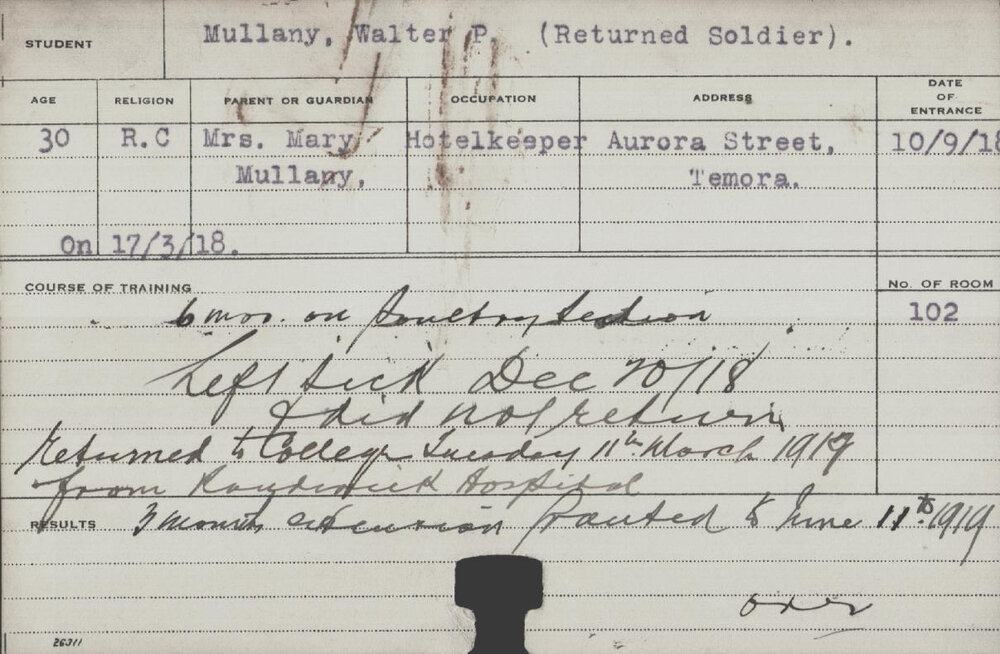 STUDENT Mullany, Walter P. (Returned Soldier).
AGE RELIGION PARENT OR GUARDIAN OCCUPATION ADDRESS DATE OF ENTRANCE
30 R.C Mrs. Mary Hotelkeeper Aurora Street, 10/9/18
Mullany, Temora.
On 17/3/18.
COURSE OF TRAINING No. OF ROOM
6 mos. on Poultry Section 102
Left sick Dec 20/18
& did not return
Returned to College Tuesday 11th March 1919
from Randwick Hospital
RESULTS 3 months extension granted to June 11th 1919
over
26311